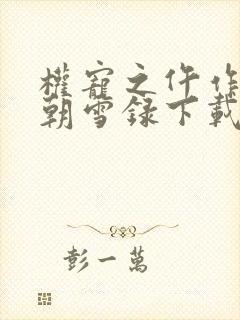 權寵之仵作
朝雪録下載
彭一萬